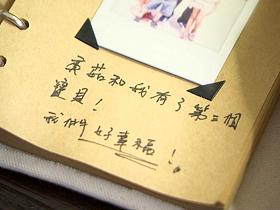 英茹和我有了第二個
寶貝!
我們好幸福!